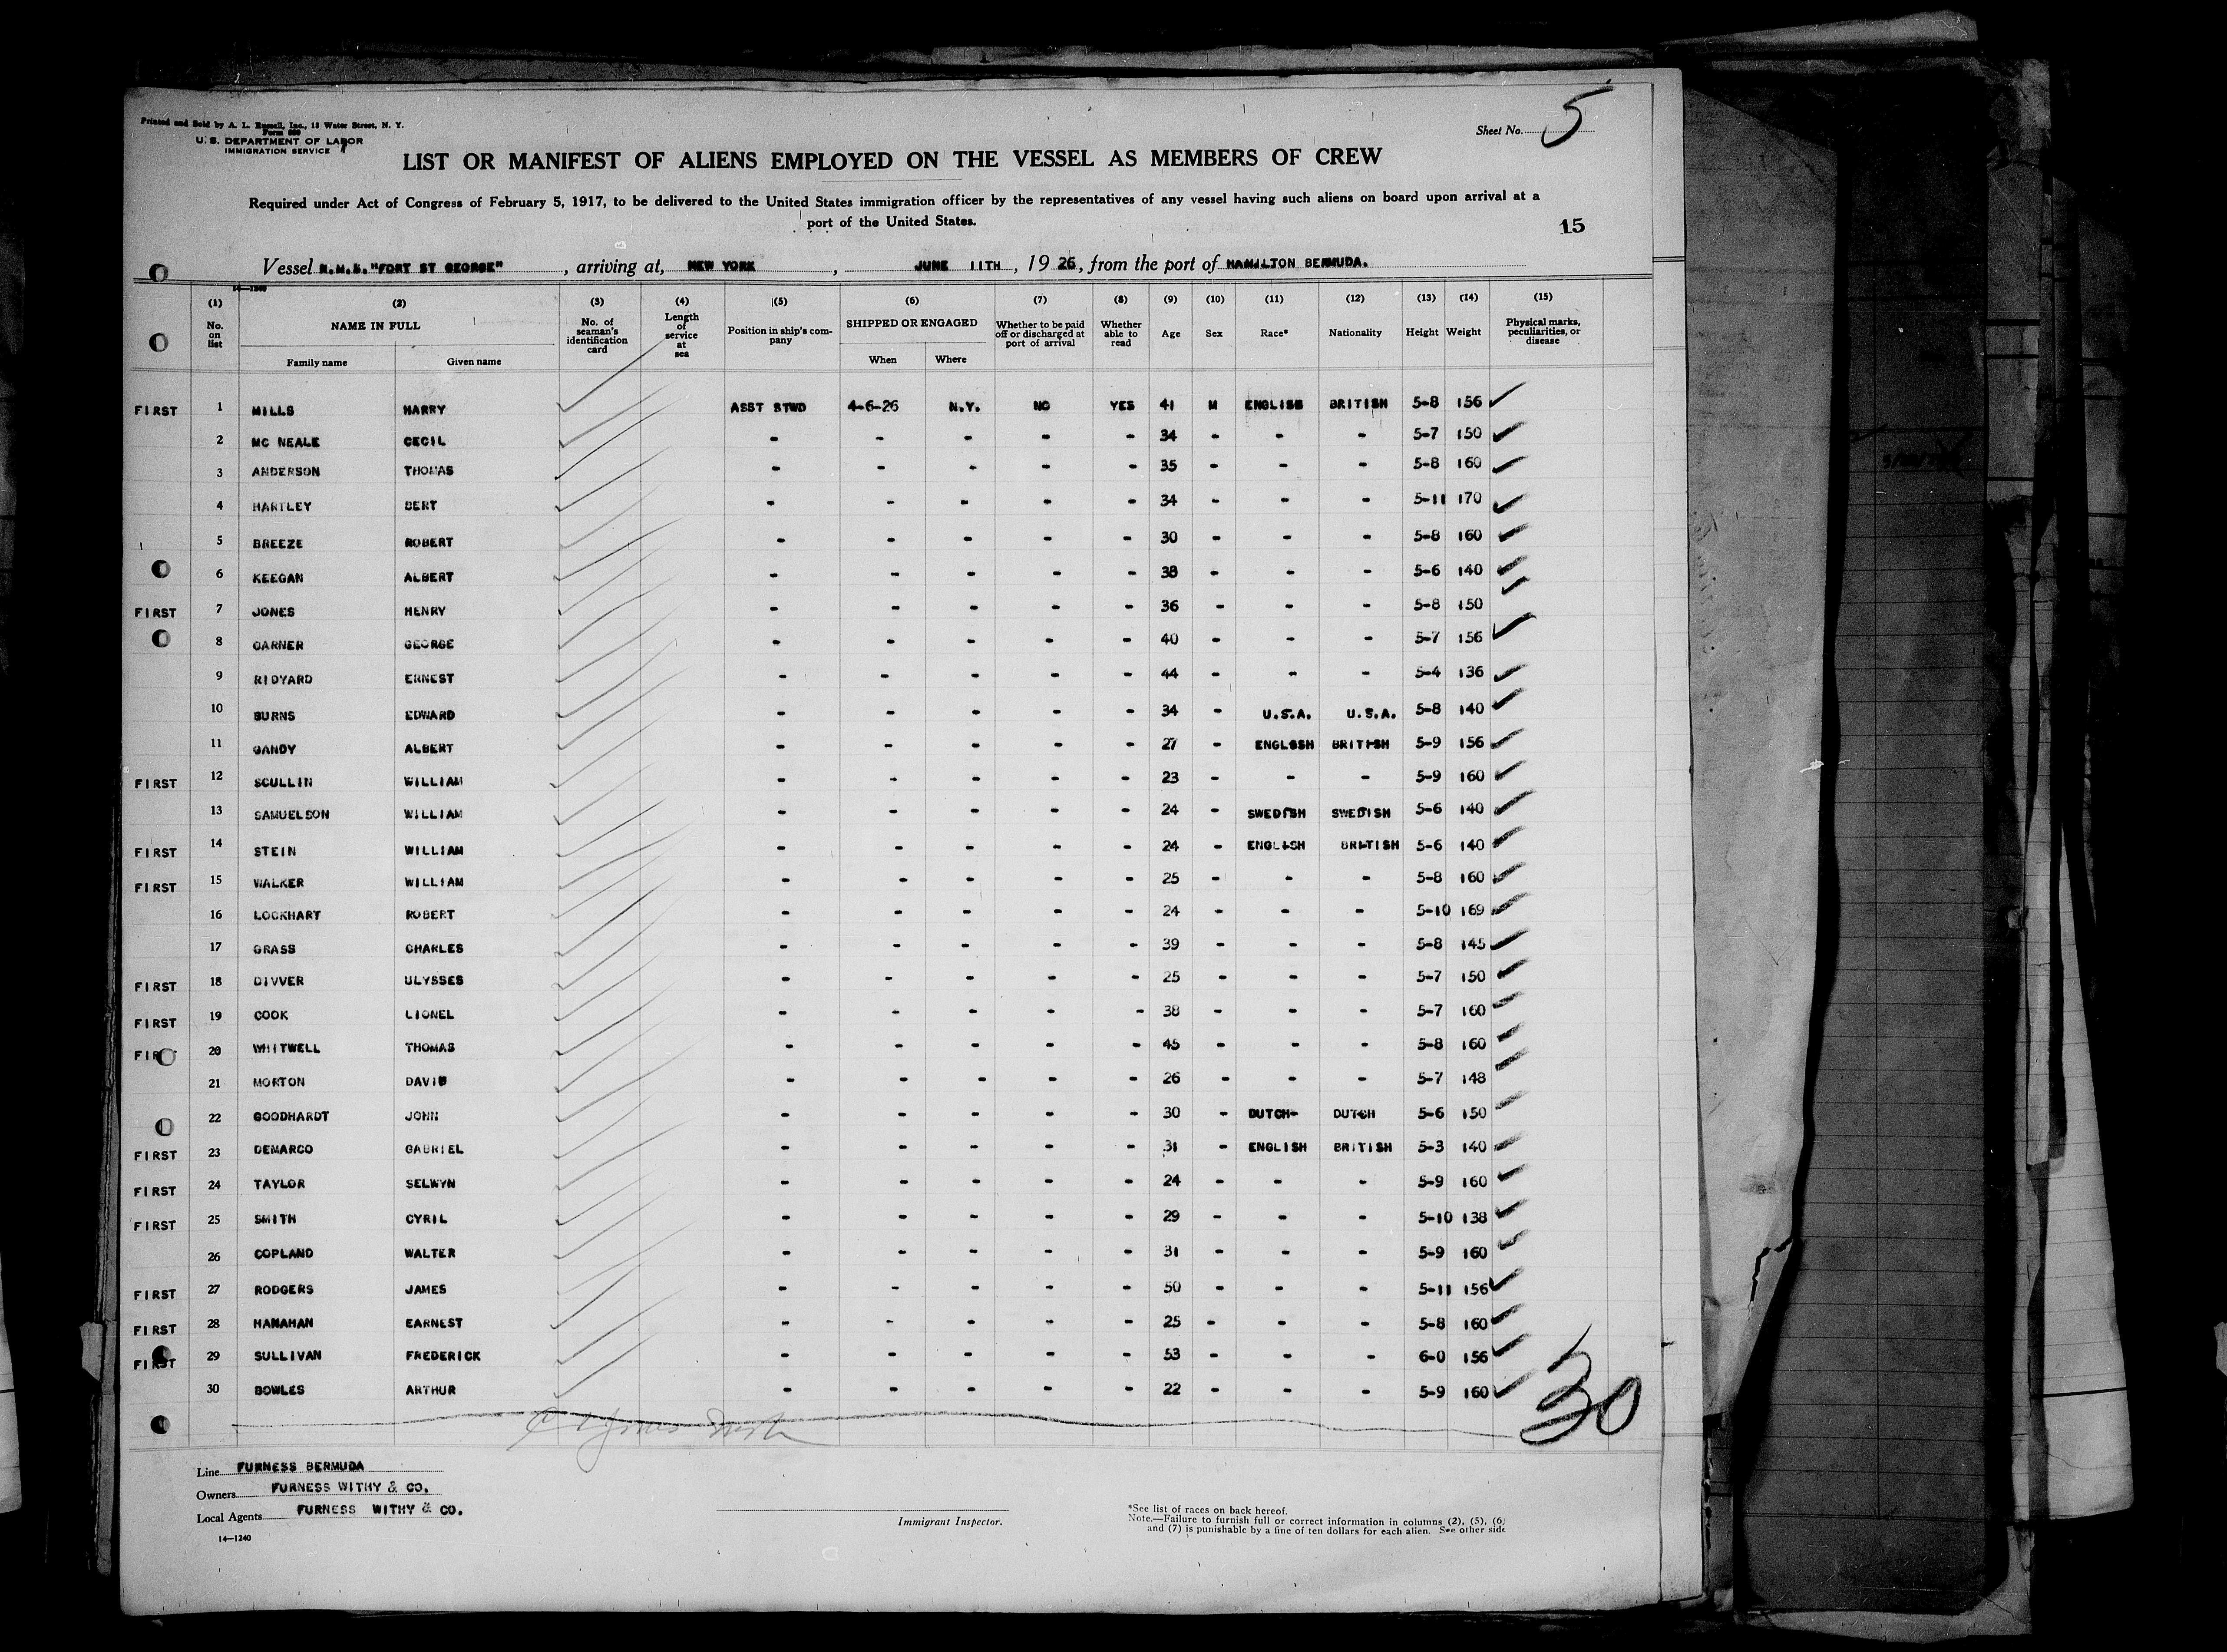 Printed and Sold by A. L. Russell, Inc., 13 Water Street, N. Y.
Form 680
U. S. DEPARTMENT OF LABOR
IMMIGRATION SERVICE
Sheet No. 5
LIST OR MANIFEST OF ALIENS EMPLOYED ON THE VESSEL AS MEMBERS OF CREW
Required under Act of Congress of February 5, 1917, to be delivered to the United States immigration officer by the representatives of any vessel having such aliens on board upon arrival at a
port of the United States.
15
Vessel R.M.S. "FORT ST GEORGE", arriving at, NEW YORK, JUNE 11TH, 1926, from the port of HAMILTON BERMUDA.
14—1240
(1) (2) (3) (4) (5) (6) (7) (8) (9) (10) (11) (12) (13) (14) (15)
No. on list NAME IN FULL Family name Given name No. of seaman's identification card Length of service at sea Position in ship's company SHIPPED OR ENGAGED When Where Whether to be paid off or discharged at port of arrival Whether able to read Age Sex Race* Nationality Height Weight Physical marks, peculiarities, or disease
FIRST 1 MILLS HARRY ASST STWD 4-6-26 N.Y. NO YES 41 M ENGLISH BRITISH 5-8 156
2 MC NEALE CECIL - - - - - 34 - - - 5-7 150
3 ANDERSON THOMAS - - - - - 35 - - - 5-8 160
4 HARTLEY BERT - - - - - 34 - - - 5-11 170
5 BREEZE ROBERT - - - - - 30 - - - 5-8 160
6 KEEGAN ALBERT - - - - - 38 - - - 5-6 140
FIRST 7 JONES HENRY - - - - - 36 - - - 5-8 150
8 GARNER GEORGE - - - - - 40 - - - 5-7 156
9 RIDYARD ERNEST - - - - - 44 - - - 5-4 136
10 BURNS EDWARD - - - - - 34 - U.S.A. U.S.A. 5-8 140
11 GANDY ALBERT - - - - - 27 - ENGLSSH BRITISH 5-9 156
FIRST 12 SCULLIN WILLIAM - - - - - 23 - - - 5-9 160
13 SAMUELSON WILLIAM - - - - - 24 - SWEDISH SWEDISH 5-6 140
FIRST 14 STEIN WILLIAM - - - - - 24 - ENGLISH BRITISH 5-6 140
FIRST 15 WALKER WILLIAM - - - - - 25 - - - 5-8 160
16 LOCKHART ROBERT - - - - - 24 - - - 5-10 169
17 GRASS CHARLES - - - - - 39 - - - 5-8 145
FIRST 18 DIVVER ULYSSES - - - - - 25 - - - 5-7 150
FIRST 19 COOK LIONEL - - - - - 38 - - - 5-7 160
FIRST 20 WHITWELL THOMAS - - - - - 45 - - - 5-8 160
21 MORTON DAVID - - - - - 26 - - - 5-7 148
22 GOODHARDT JOHN - - - - - 30 - DUTCH- DUTCH 5-6 150
FIRST 23 DEMARCO GABRIEL - - - - - 31 - ENGLISH BRITISH 5-3 140
FIRST 24 TAYLOR SELWYN - - - - - 24 - - - 5-9 160
FIRST 25 SMITH CYRIL - - - - - 29 - - - 5-10 138
26 COPLAND WALTER - - - - - 31 - - - 5-9 160
FIRST 27 RODGERS JAMES - - - - - 50 - - - 5-11 156
FIRST 28 HANAHAN EARNEST - - - - - 25 - - - 5-8 160
FIRST 29 SULLIVAN FREDERICK - - - - - 53 - - - 6-0 156
30 BOWLES ARTHUR - - - - - 22 - - - 5-9 160
30
Line FURNESS BERMUDA
Owners FURNESS WITHY & CO.
Local Agents FURNESS WITHY & CO.
14—1240
Immigrant Inspector.
*See list of races on back hereof.
Note.—Failure to furnish full or correct information in columns (2), (5), (6)
and (7) is punishable by a fine of ten dollars for each alien. See other side